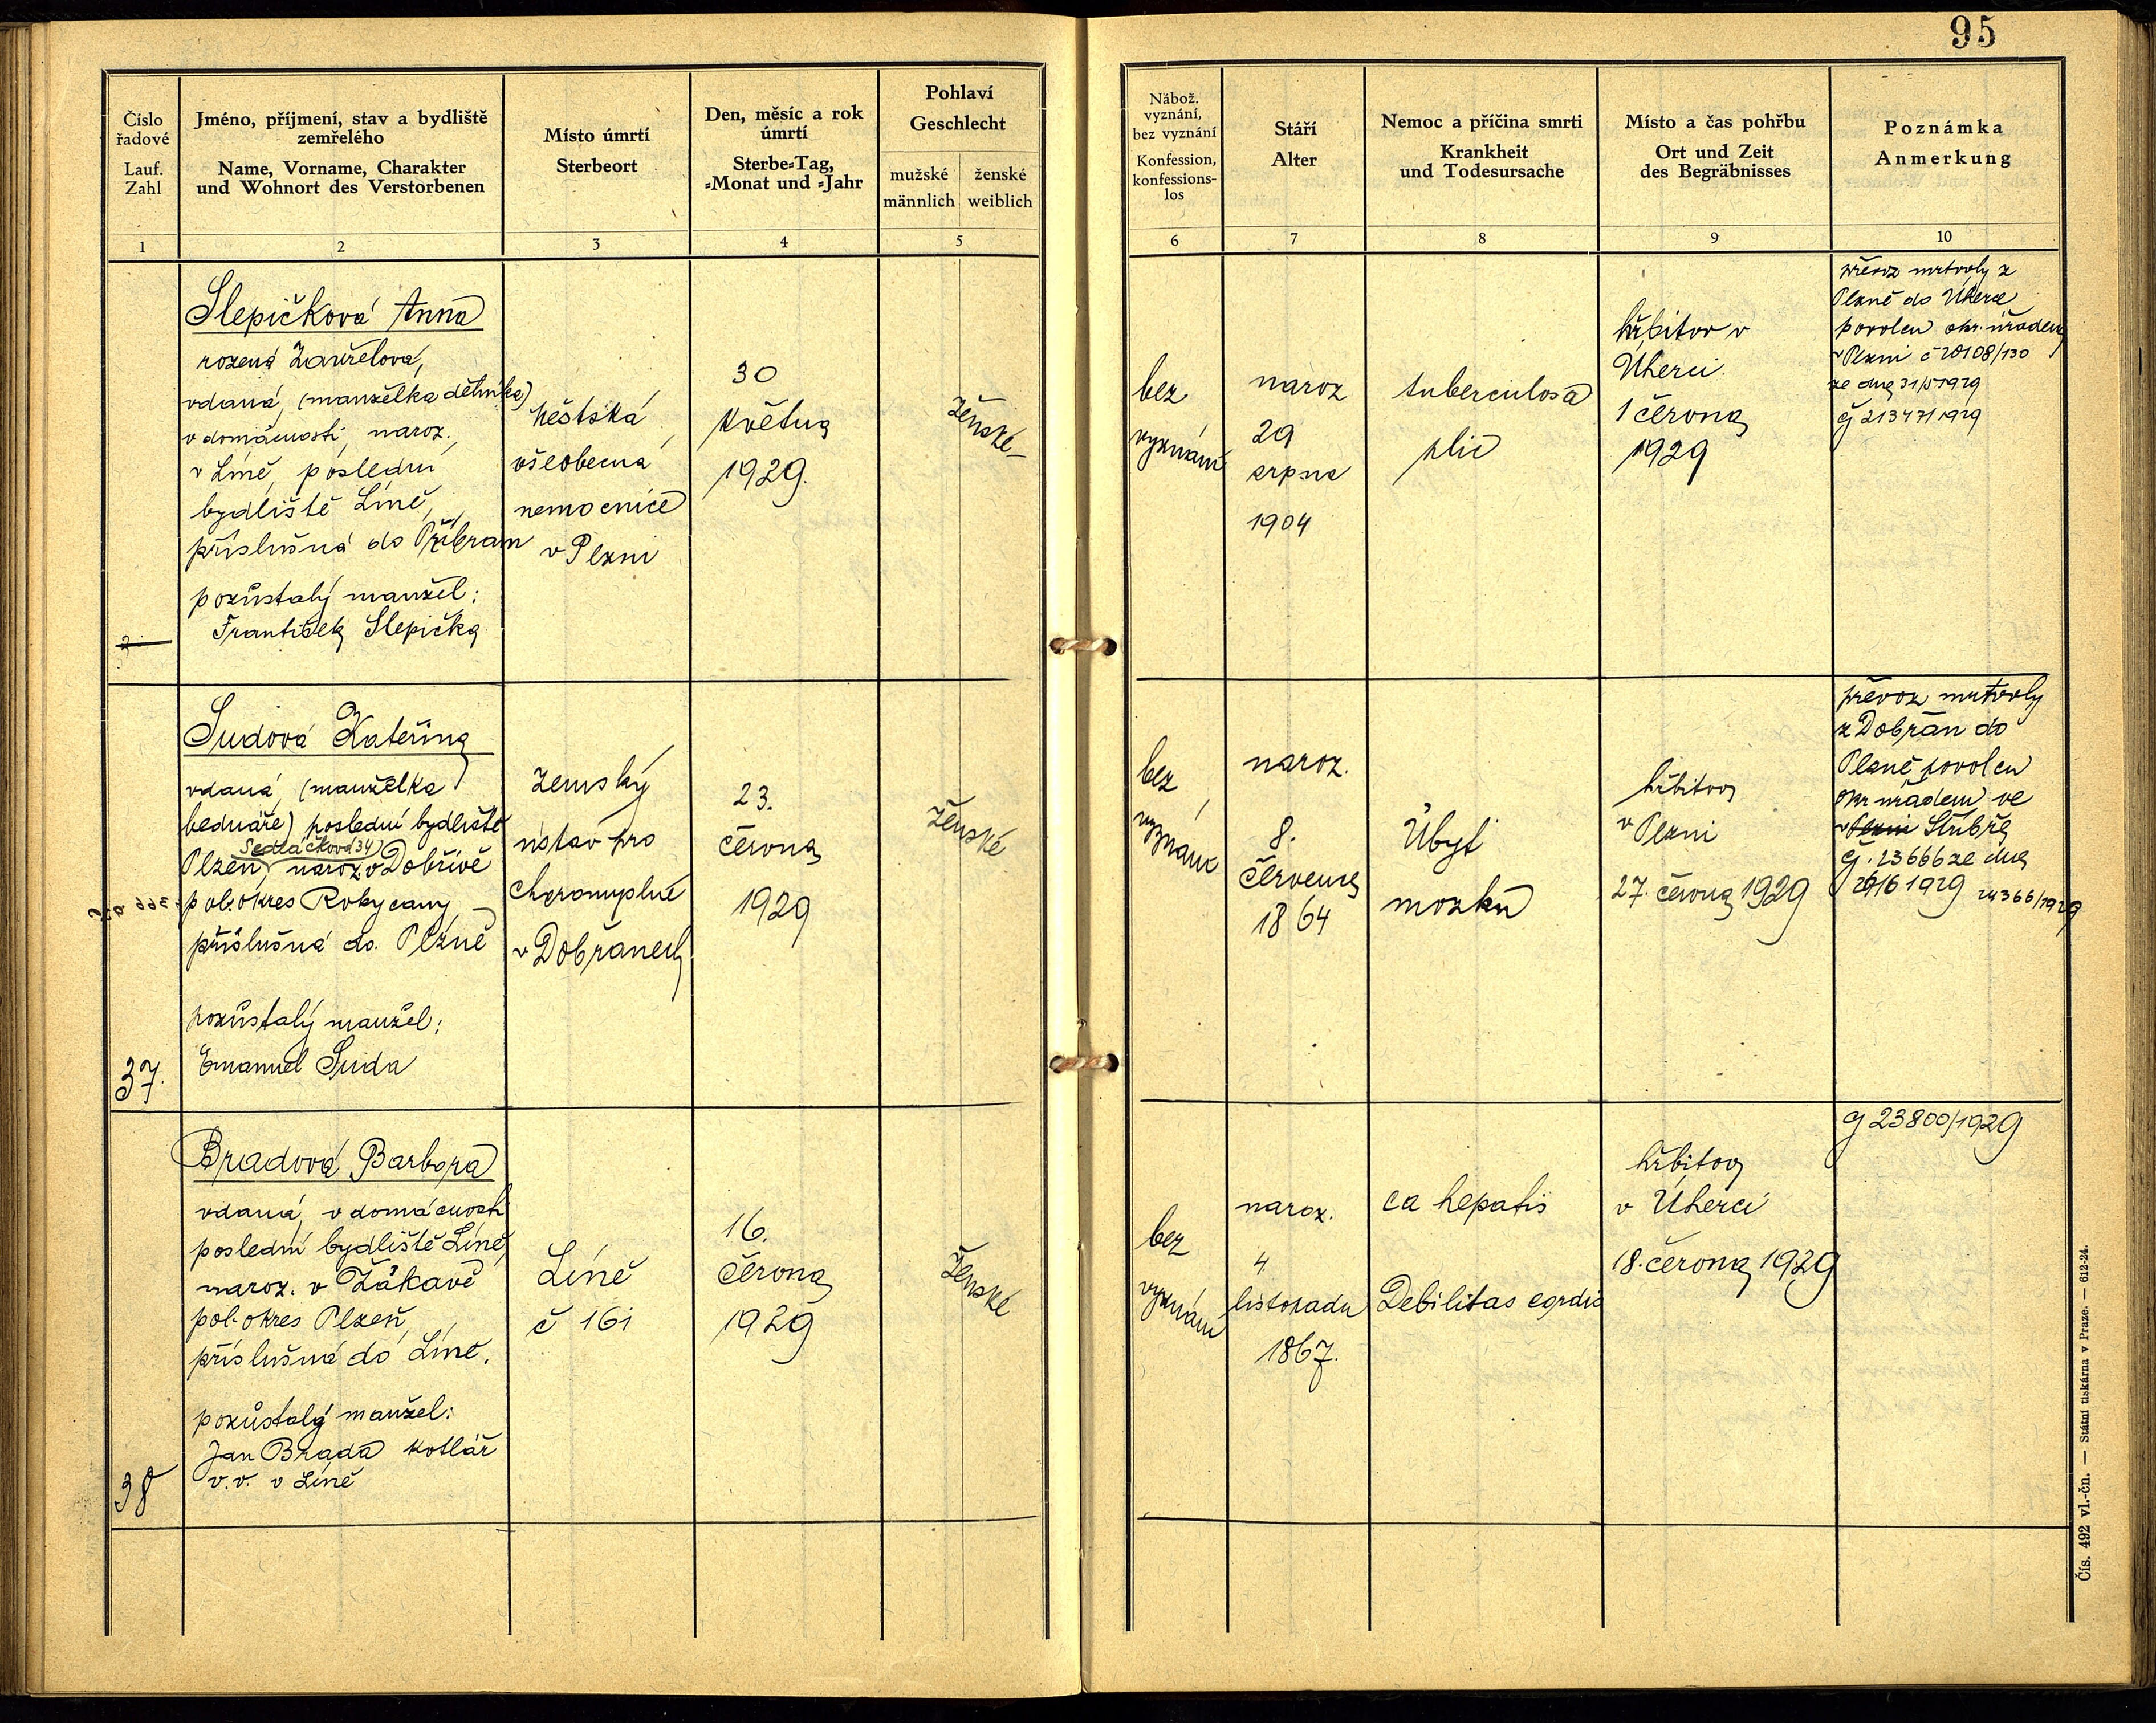 95
Číslo
řadové
Lauf.
Zahl
Jméno, příjmení, stav a bydliště
zemřelého
Name, Vorname, Charakter
und Wohnort des Verstorbenen
Místo úmrtí
Sterbeort
Den, měsíc a rok
úmrtí
Sterbe-Tag,
-Monat und -Jahr
Pohlaví
Geschlecht
mužské
männlich
ženské
weiblich
Nábož.
vyznání,
bez vyznání
Konfession,
konfessions-
los
Stáří
Alter
Nemoc a příčina smrti
Krankheit
und Todesursache
Místo a čas pohřbu
Ort und Zeit
des Begräbnisses
Poznámka
Anmerkung
1
2
3
4
5
6
7
8
9
10
Slepičková Anna
rozená
vdaná, (manželka dělníka)
v domácnosti, naroz.
v Líně, poslední
bydliště Líně,
příslušná do Příbram
pozůstalý manžel:
František Slepička
Městská
všeobecná
nemocnice
v Plzni
30
května
1929.
ženské
bez
vyznání
naroz
29
srpna
1904
tuberculosa
plic
hřbitov v
Úherci
1 června
1929
převoz mrtvoly z
Plzně do Úherce
povolen okr. úřadem
v Plzni č 20108/130
ze dne 31/5 1929
čj 21347/1929
37.
Sudová Kateřina
vdaná, (manželka
bednáře) poslední bydliště
Sedláčkova 34
Plzeň, naroz. v Dobřívě
pol. okres Rokycany,
příslušná do Plzně
pozůstalý manžel:
Emanuel Suda
Zemský
ústav pro
choromyslné
v Dobřanech
23.
června
1929
ženské
bez
vyznání
naroz.
8.
července
1864
Úbyť
mozku
hřbitov
v Plzni
27. června 1929
převoz mrtvoly
z Dobřan do
Plzně povolen
okr úřadem ve
v Plzni Stříbře
čj. 23666 ze dne
26/6 1929
38
Bradová Barbora
vdaná, v domácnosti
poslední bydliště Líně,
naroz. v Žákavě
pol. okres Plzeň,
příslušná do Líně.
pozůstalý manžel:
Jan Brada kotlář
v.v. v Líně
Líně
č 161
16.
června
1929
ženské
bez
vyznání
naroz.
4
listopadu
1867.
ca hepatis
Debilitas cordis
hřbitov
v Úherci
18. června 1929
čj 23800/1929
Čís. 492 vl.-čn. — Státní tiskárna v Praze. — 612-24.